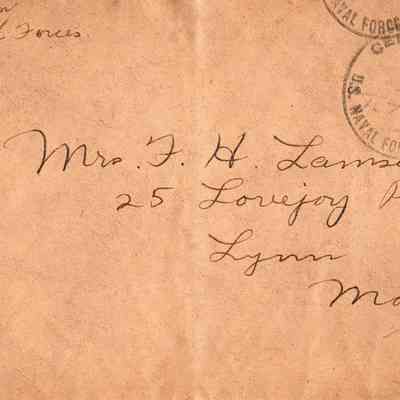 Forces.
NAVAL FORC
U.S. NAVAL FOR
Mrs. F. H. Lams
25 Lovejoy
Lynn
Ma